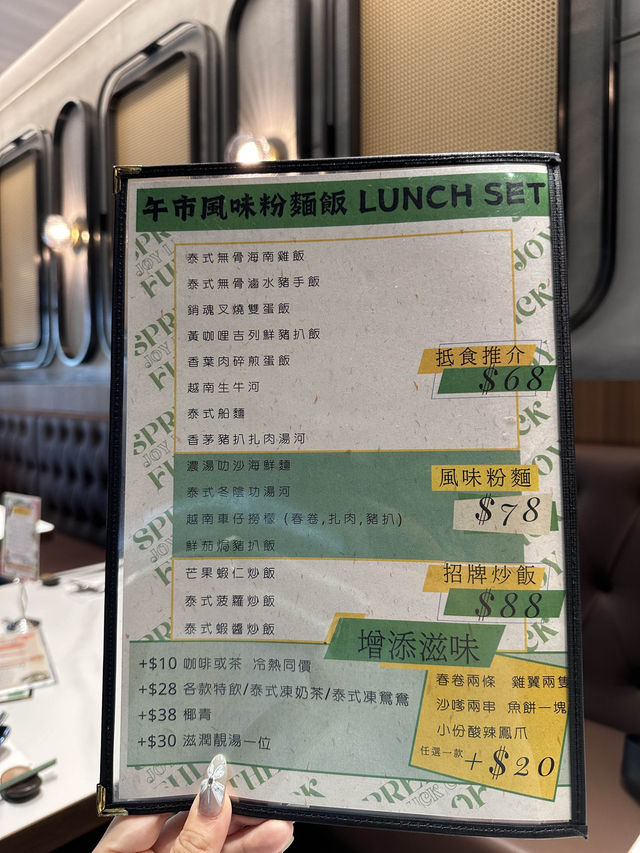 午市風味粉麵飯 LUNCH SET
泰式無骨海南雞飯
泰式無骨滷水豬手飯
銷魂叉燒雙蛋飯
黃咖喱吉列鮮豬扒飯
香葉肉碎煎蛋飯
越南生牛河
泰式船麵
香茅豬扒扎肉湯河
抵食推介
$68
濃湯叻沙海鮮麵
泰式冬陰功湯河
越南車仔撈檬 (春卷,扎肉,豬扒)
鮮茄焗豬扒飯
風味粉麵
$78
芒果蝦仁炒飯
泰式菠蘿炒飯
泰式蝦醬炒飯
招牌炒飯
$88
增添滋味
+$10 咖啡或茶 冷熱同價
+$28 各款特飲/泰式凍奶茶/泰式凍鴛鴦
+$38 椰青
+$30 滋潤靚湯一位
春卷兩條 雞翼兩隻
沙嗲兩串 魚餅一塊
小份酸辣鳳爪
任選一款 +$20